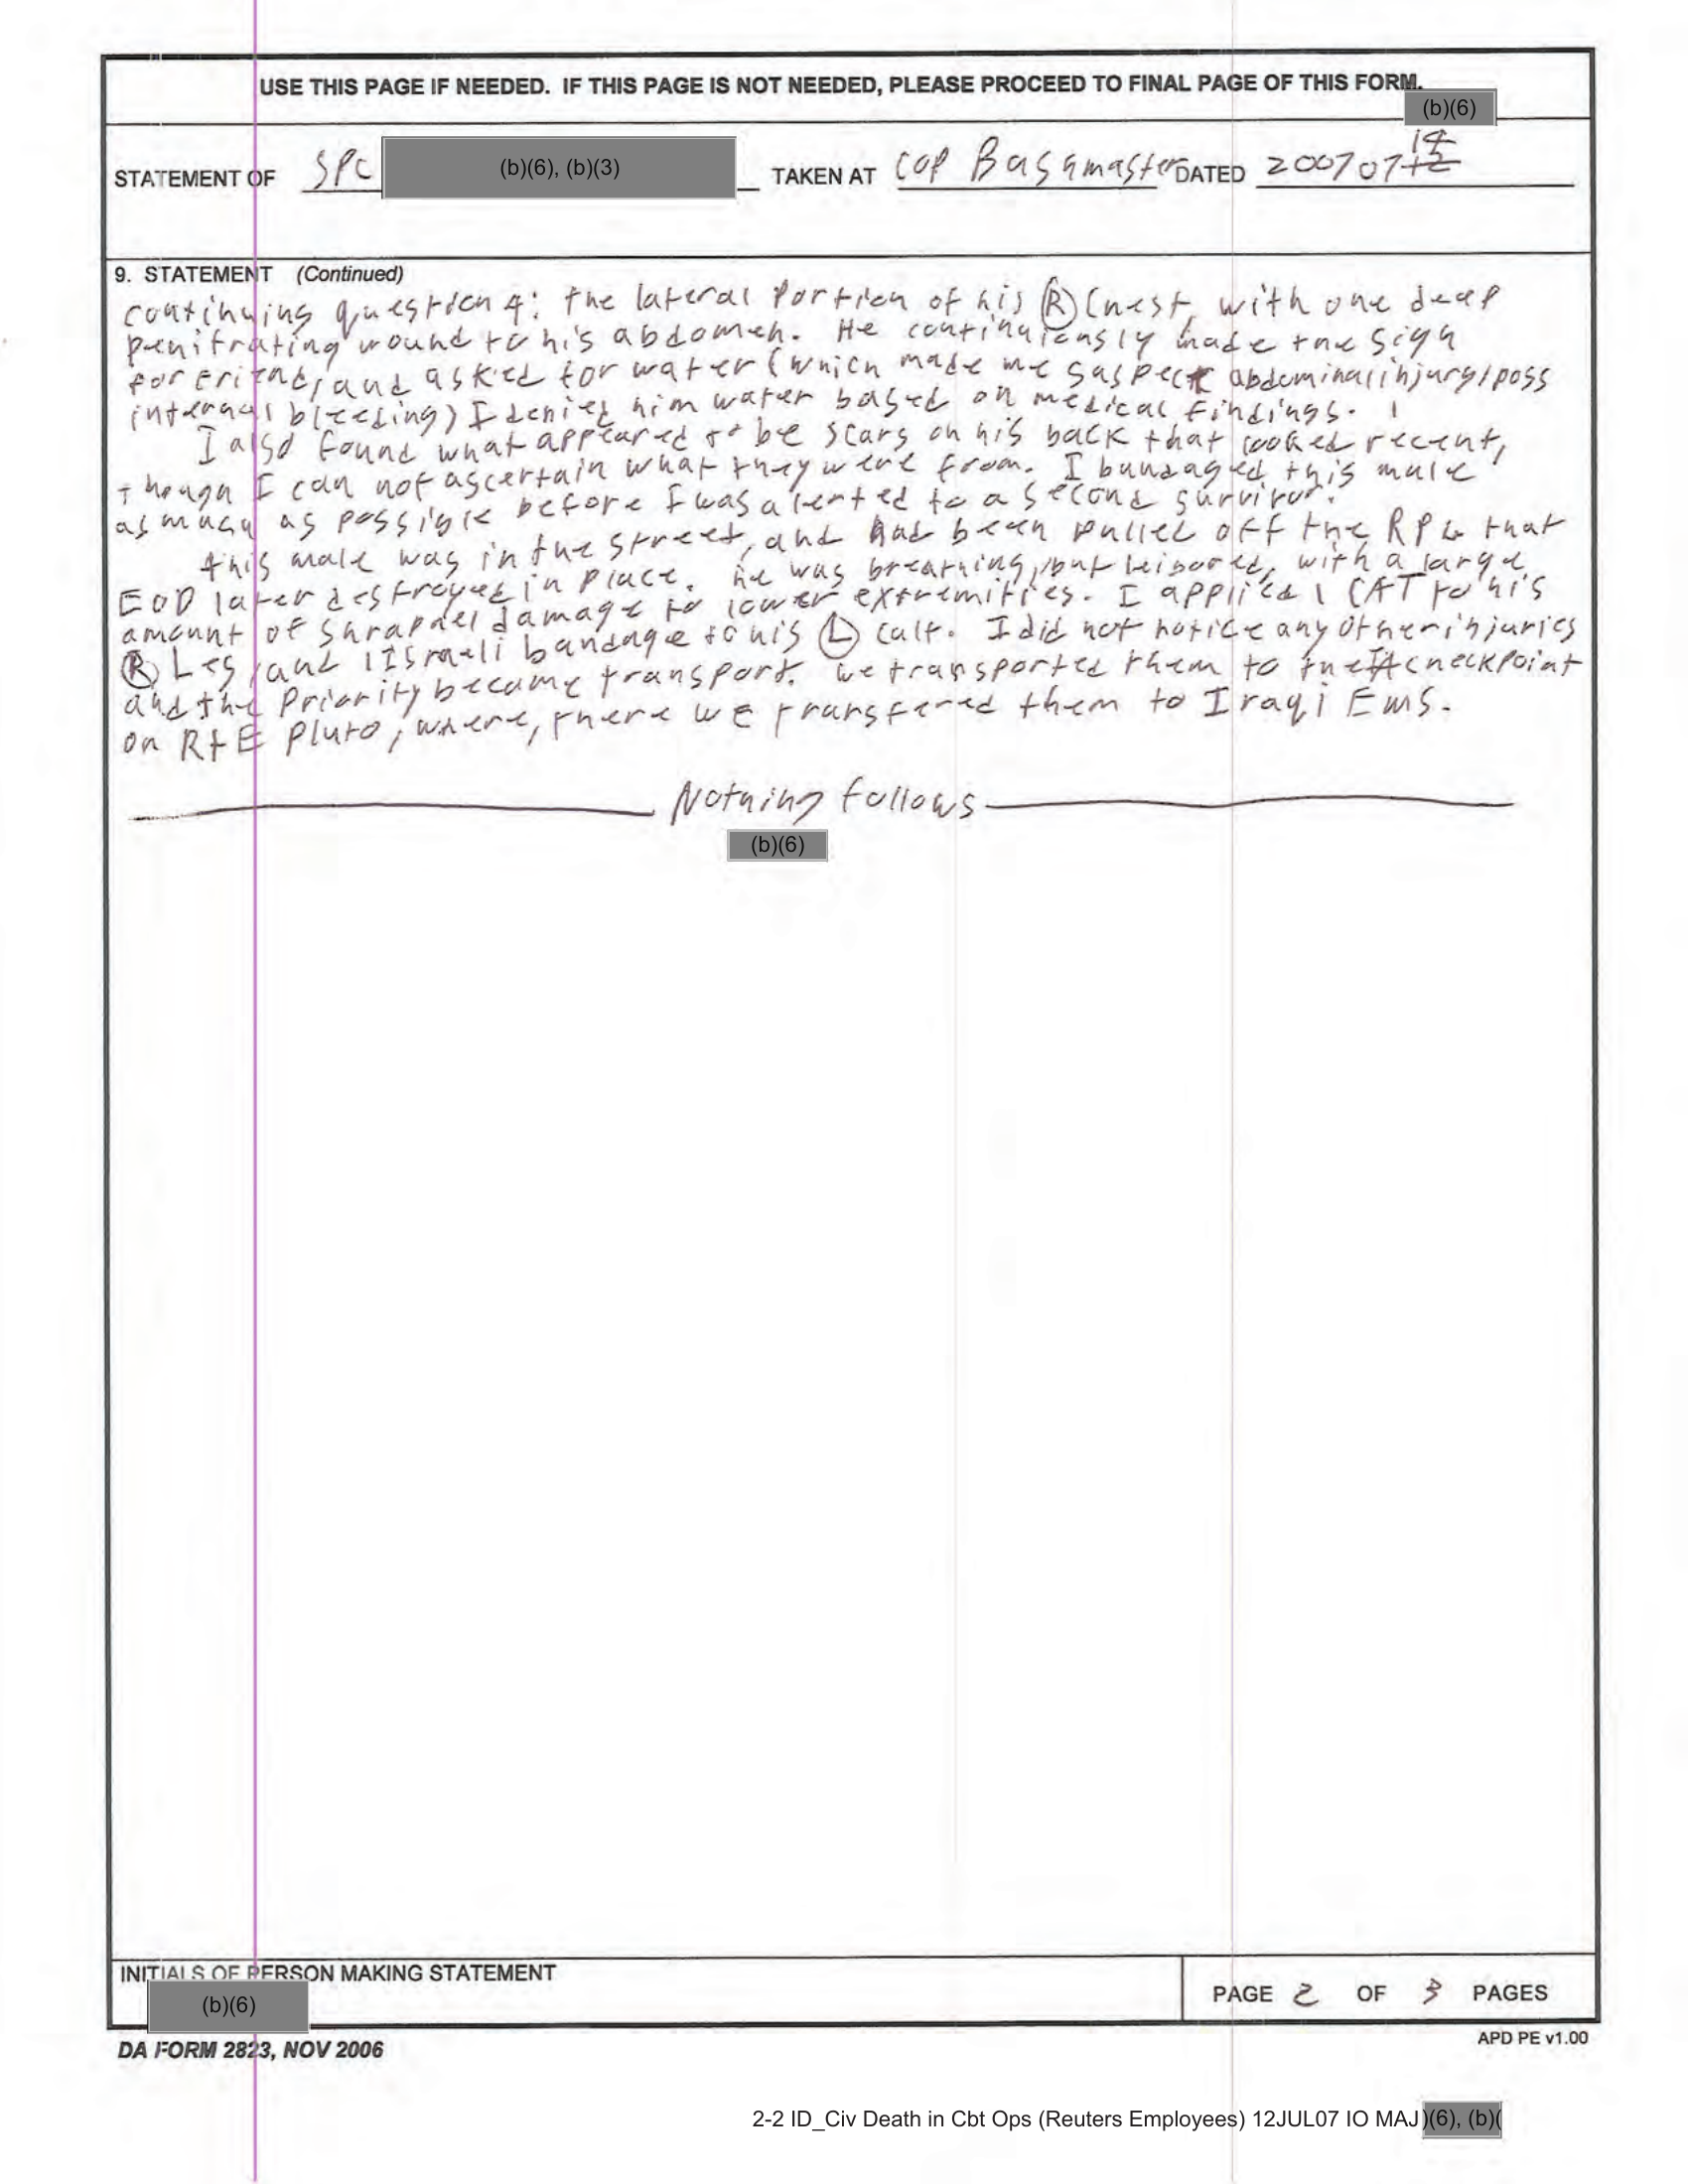 USE THIS PAGE IF NEEDED. IF THIS PAGE IS NOT NEEDED, PLEASE PROCEED TO FINAL PAGE OF THIS FORM.
(b)(6)
STATEMENT OF SPC (b)(6), (b)(3) TAKEN AT COP Bassmaster DATED 20070712 14
9. STATEMENT (Continued)
continuing question 4: the lateral Portion of his (R) Chest, with one deep
penitrating wound to his abdomen. He continuiously made the sign
for friend, and asked for water (which made me suspect abdominal injury/poss
internal bleeding) I denied him water based on medical findings.
I also found what appeared to be scars on his back that looked recent,
though I can not ascertain what they were from. I bandaged this male
as much as possible before I was alerted to a second survivor.
this male was in the street, and had been pulled off the RPG that
EOD later destroyed in place. he was breathing, but labored, with a large
amount of Shrapnel damage to lower extremities. I applied 1 CAT to his
(R) Leg, and 1 Israeli bandage to his (L) calf. I did not notice any other injuries
and the Priority became transport. We transported them to the IA checkpoint
on RtE Pluto, where, there we transfered them to Iraqi Ems.
Nothing follows
(b)(6)
INITIALS OF PERSON MAKING STATEMENT
(b)(6)
PAGE 2 OF 3 PAGES
DA FORM 2823, NOV 2006
APD PE v1.00
2-2 ID_Civ Death in Cbt Ops (Reuters Employees) 12JUL07 IO MAJ )(6), (b)(